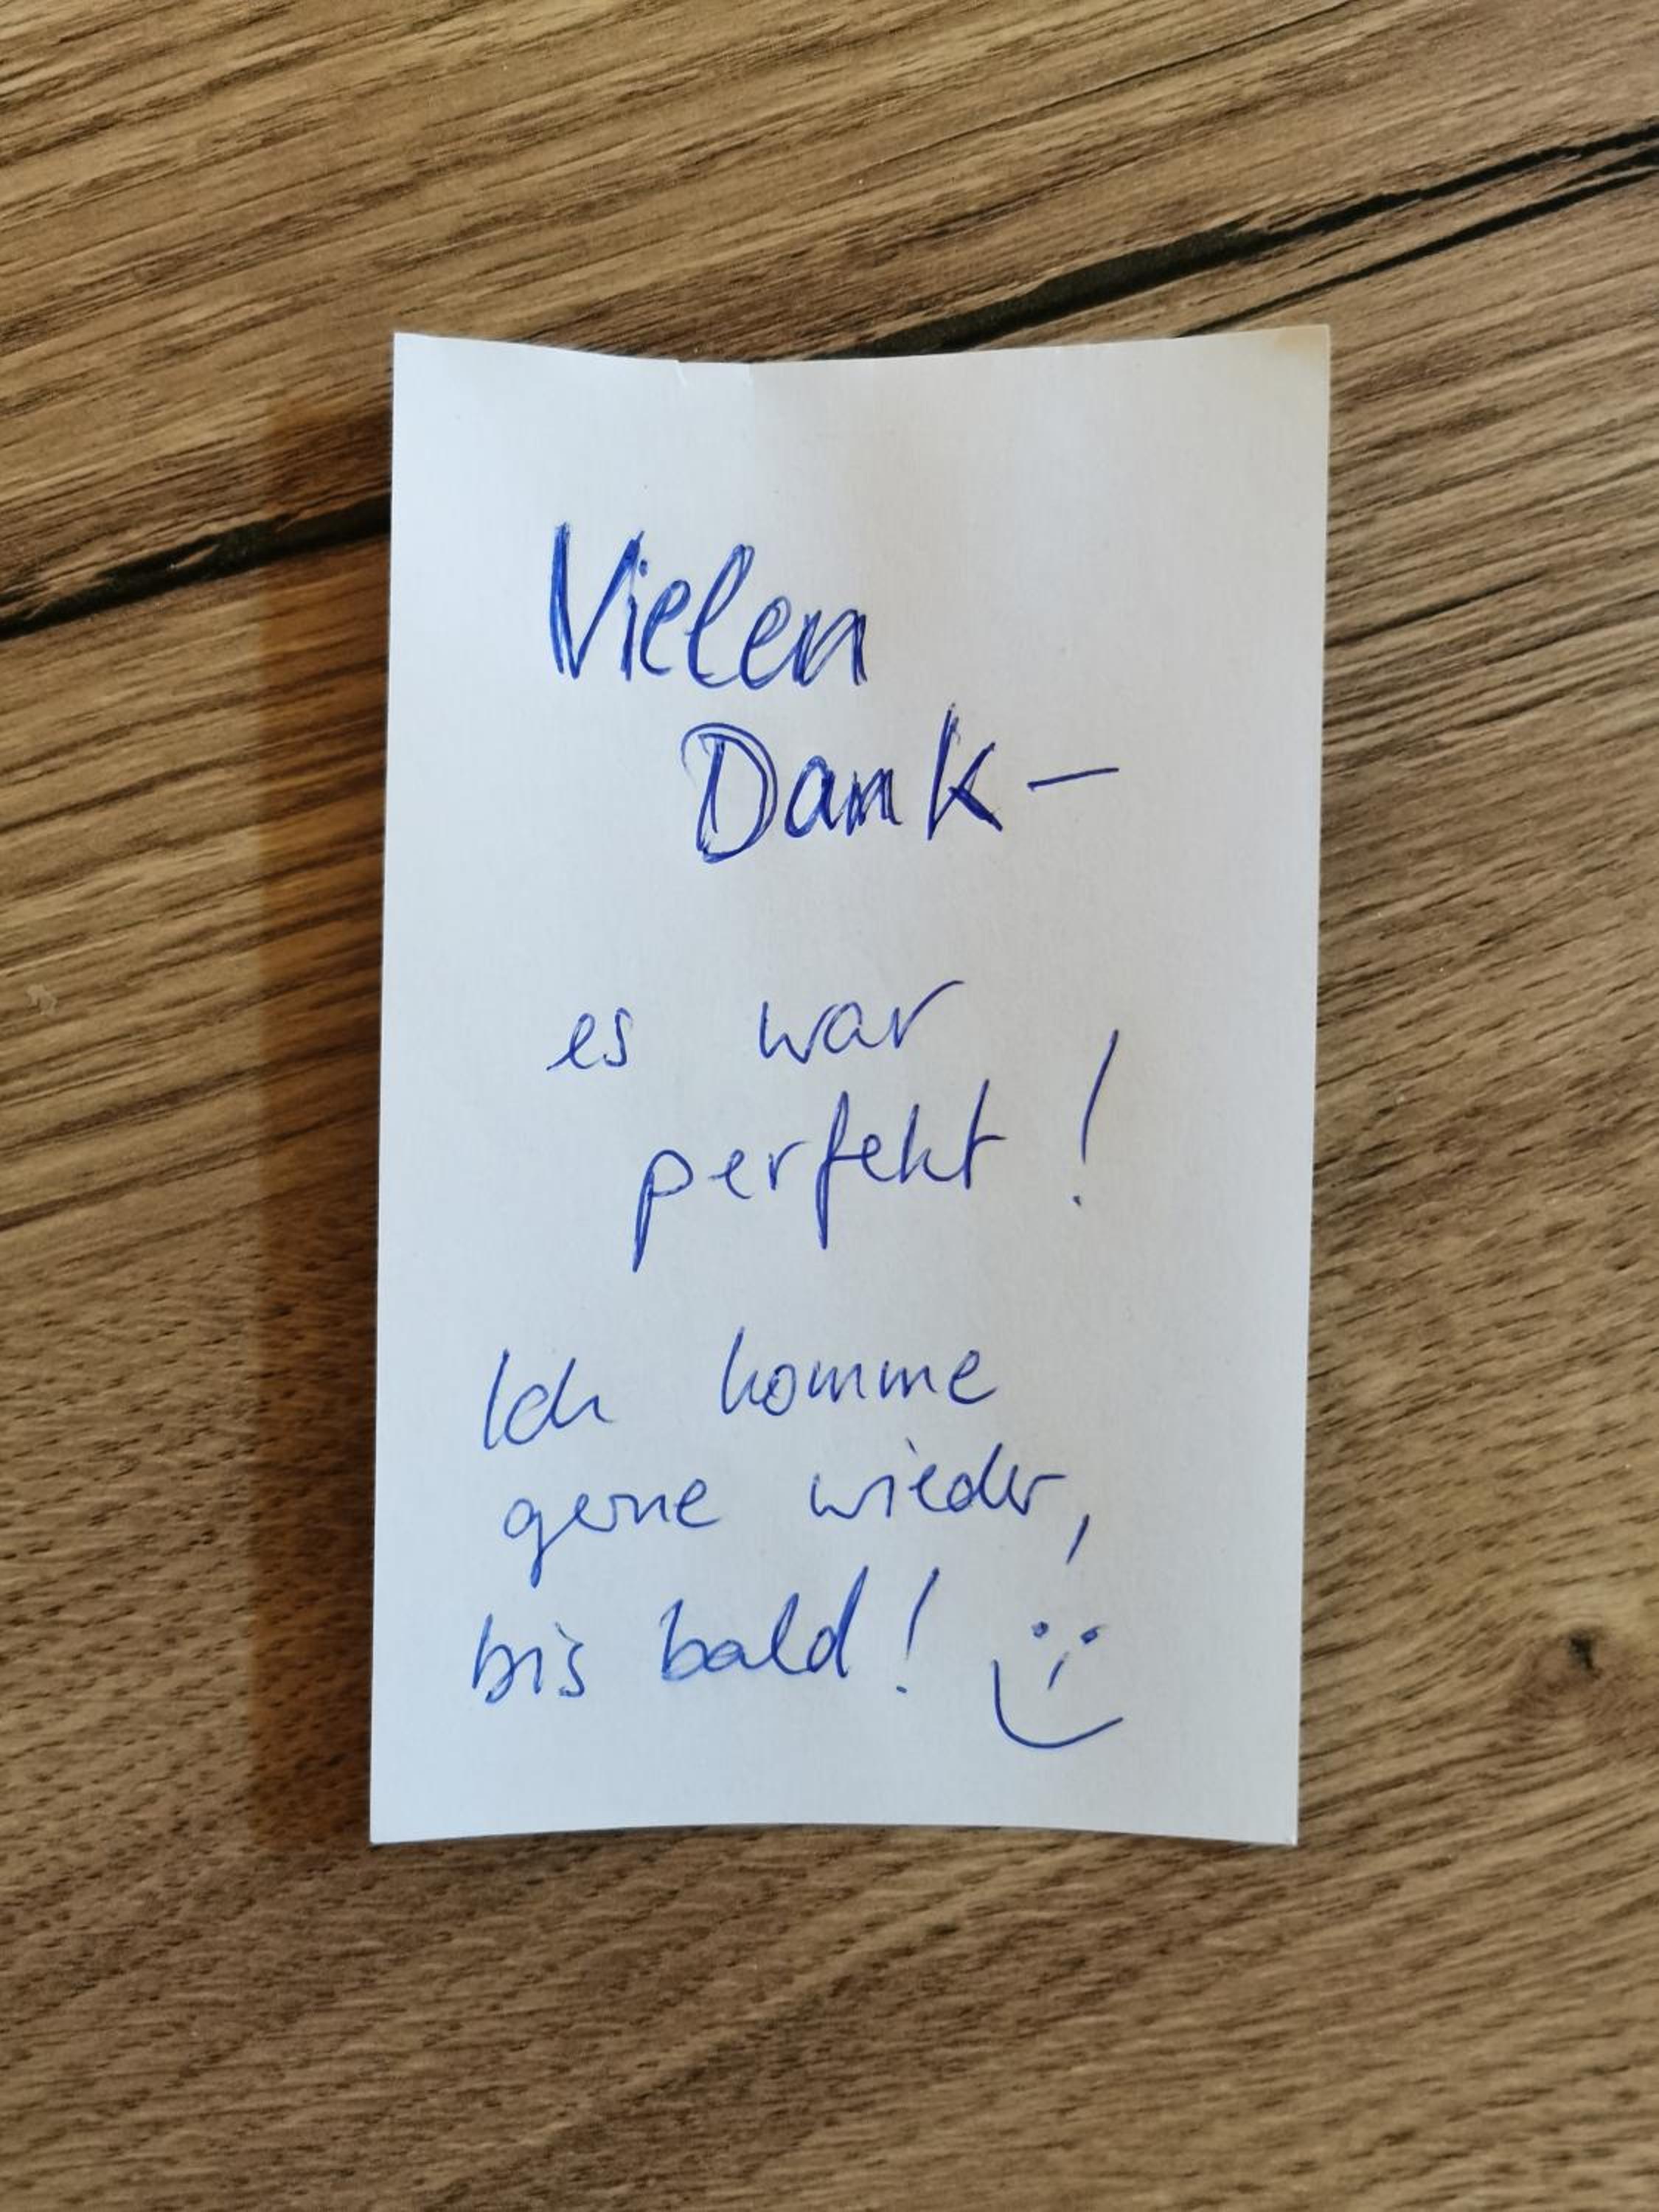 Vielen
Dank –
es war
perfekt!
Ich komme
gerne wieder,
bis bald!